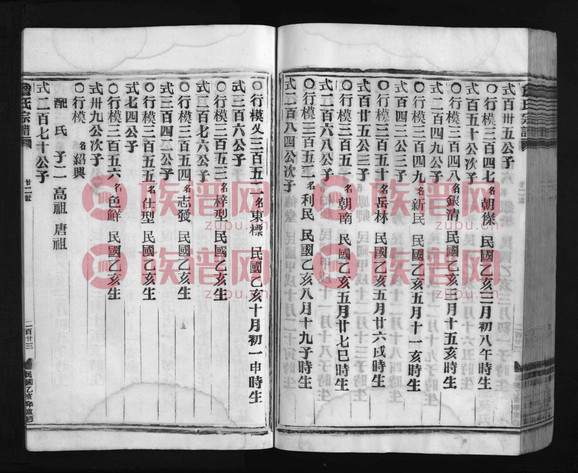 式百卅五公子
○行模三百四七名朝傑 民國乙亥三月初八午時生
式百五十公次子
○行模三百四八名銀清 民國乙亥三月十五亥時生
式二百四九公子
○行模三百四九名新民 民國乙亥五月十一亥時生
式百四三公三子
○行模三百五十名岳林 民國乙亥五月廿六戌時生
式百廿五公三子
○行模三百五一名朝南 民國乙亥五月廿七巳時生
式二百六八公子
○行模三百五二名利民 民國乙亥八月十九子時生
式二百八四公次子
○行模又三百五三名東標 民國乙亥十月初一申時生
式三百六公子
○行模三百五三名梓型 民國乙亥生
式二百七六公子
○行模三百五四名志發 民國乙亥生
式三百四二公子
○行模三百五五名仕型 民國乙亥生
式七四公子
○行模三百五六名色鮮 民國乙亥生
式卅九公次子
○行模 名紹興
配 氏 子二 高祖 唐祖
式二百七十公子
氏宗譜
廿二世
二百廿三
族譜网
zupu.cn